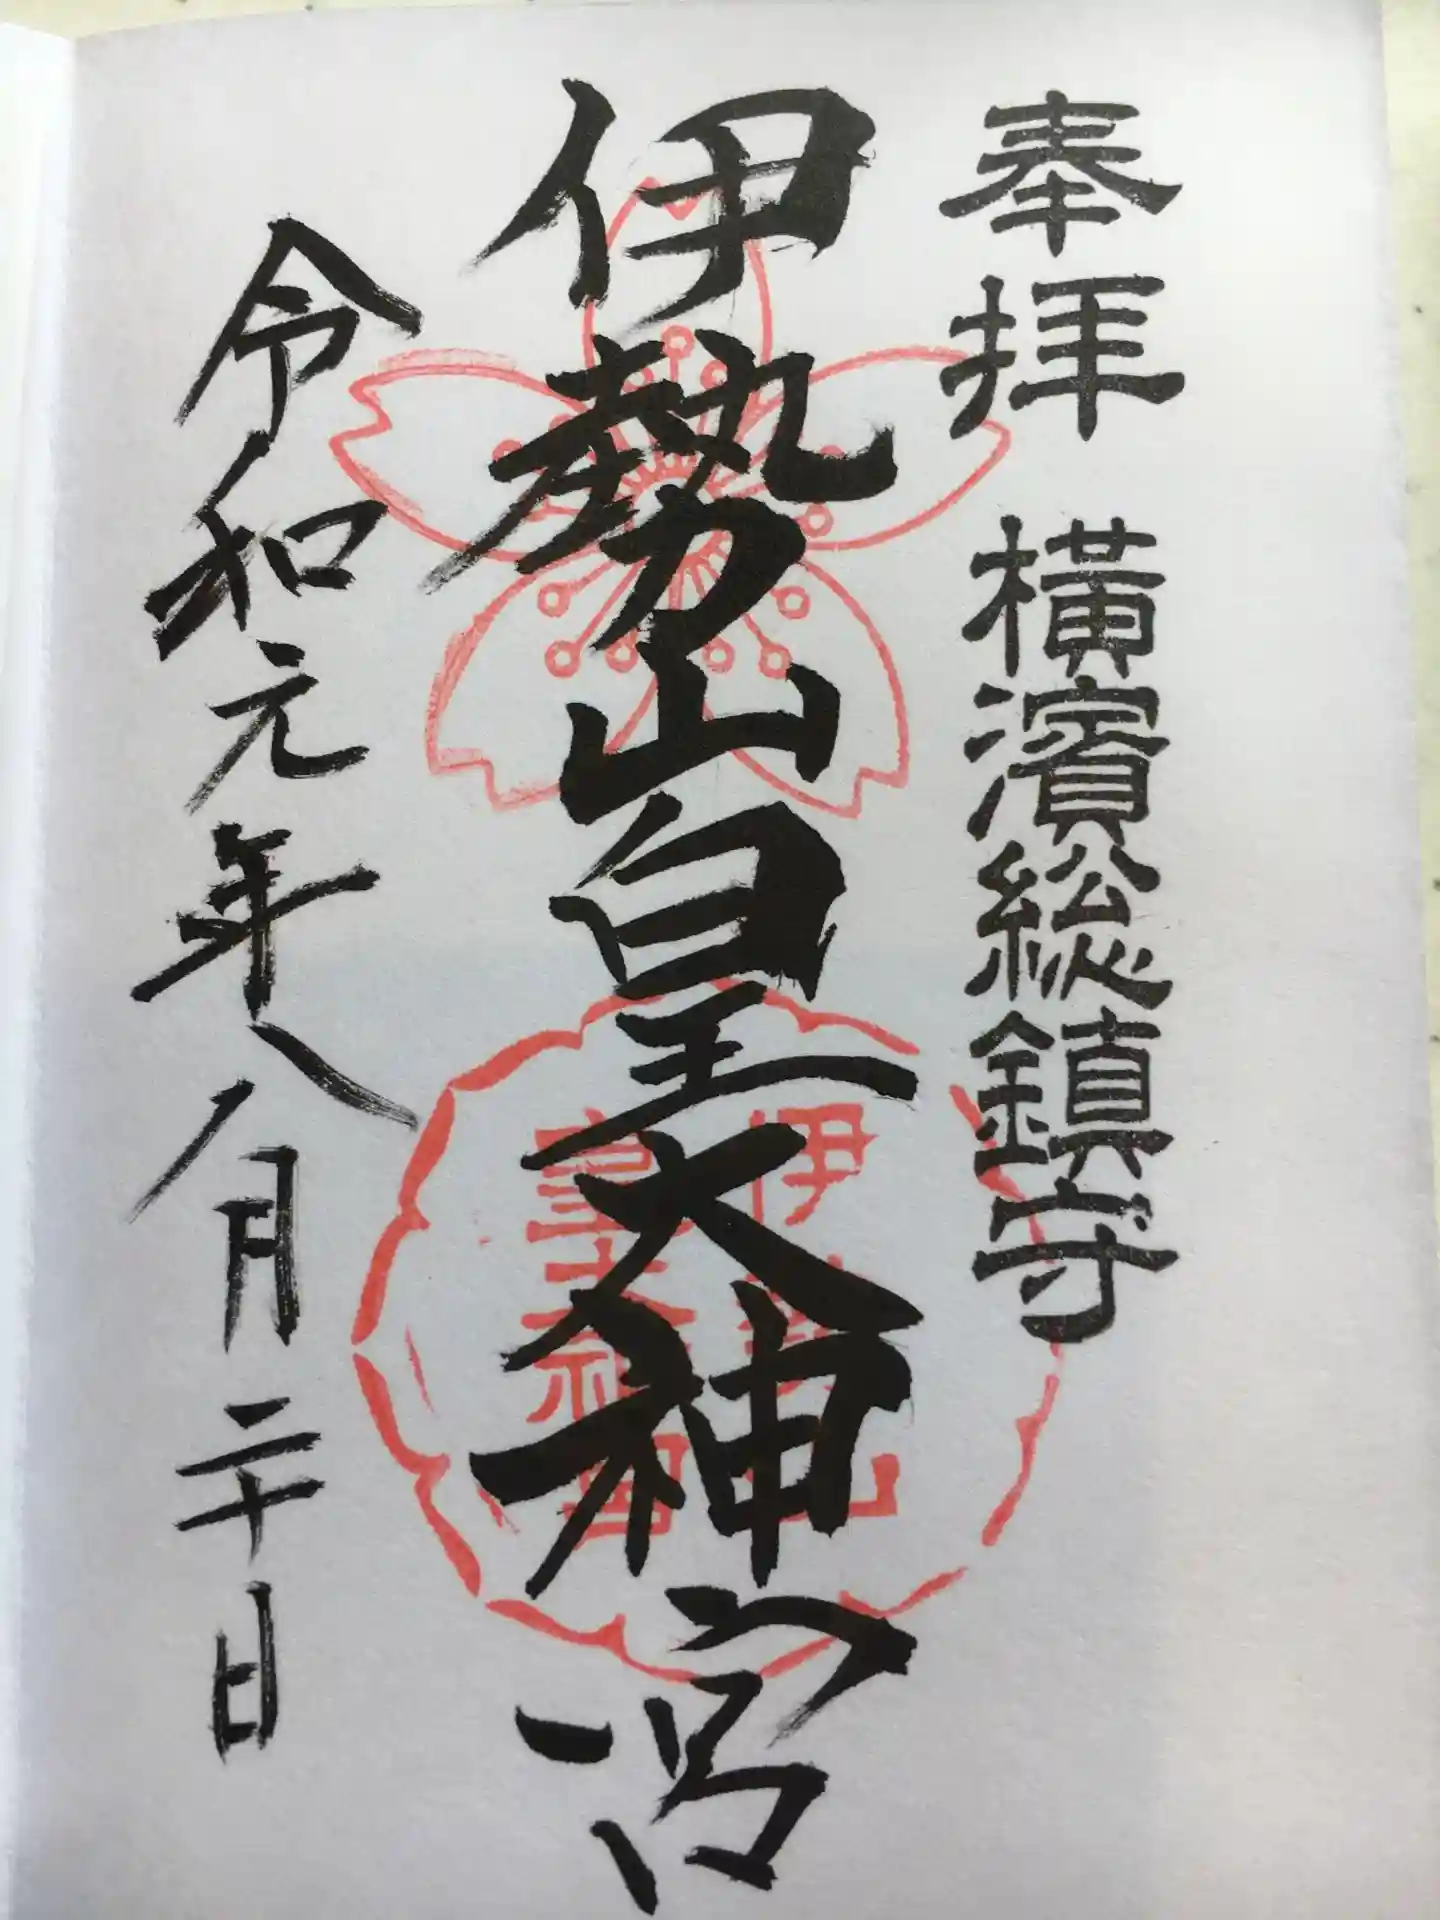 奉拝 横濱総鎮守
伊勢山皇大神宮
伊勢山
皇大神宮
令和元年八月二十日